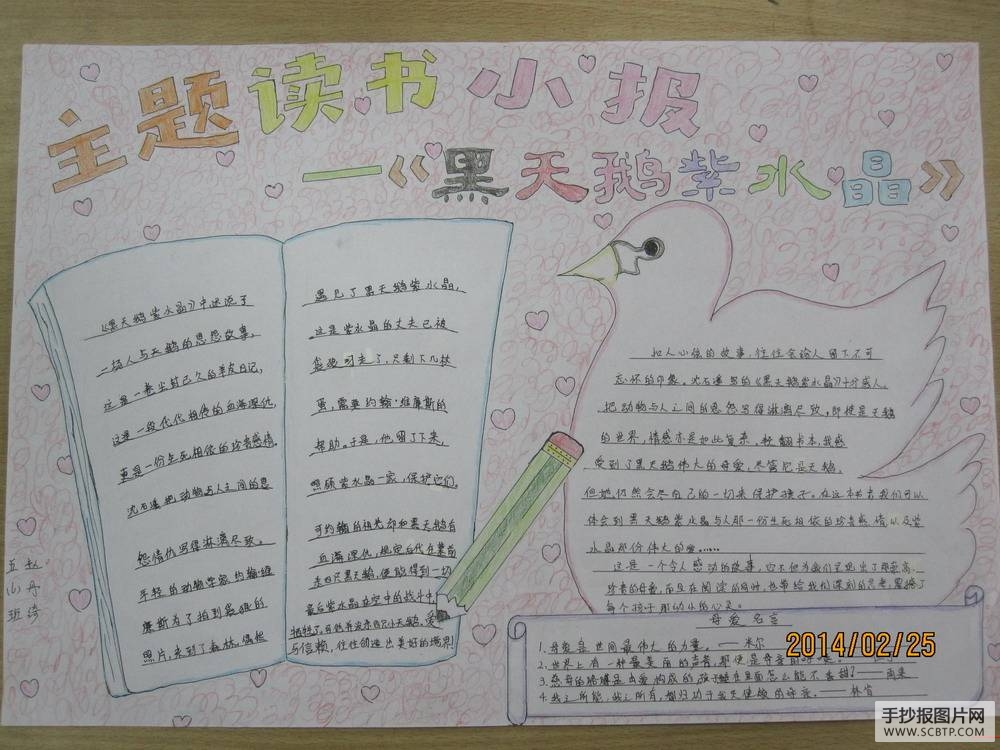 主题读书小报
—《黑天鹅紫水晶》
《黑天鹅紫水晶》中述说了
一场人与天鹅的恩怨故事。
这是一卷尘封已久的羊皮日记，
这是一段代代相传的血海深仇，
更是一份生死相依的珍贵感情。
沈石溪把动物与人之间的恩
怨情仇写得淋漓尽致。
年轻的动物学家约翰·维
廉斯为了拍到
照片，来到了森林。偶然
遇见了黑天鹅紫水晶，
这是紫水晶的丈夫已被
了，只剩下几枚
蛋，需要约翰·维廉斯的
帮助。于是，他留了下来，
照顾紫水晶一家，保护它们。
可约翰的祖先却和黑天鹅有
血海深仇，规定后代在墓前
黑天鹅，便能得到一切
最后紫水晶在空中的战斗中
牺牲了，
与信赖，往往创造出美好的境界！
扣人心弦的故事，往往会给人留下不可
忘怀的印象。沈石溪写的《黑天鹅紫水晶》十分感人。
把动物与人之间的恩怨写得淋漓尽致，即使是天鹅
的世界，情感亦是如此复杂。轻翻书本，我感
受到了黑天鹅伟大的母爱，尽管它是天鹅，
但她仍然会尽自己的一切来保护孩子。在这本书者我们可以
体会到黑天鹅紫水晶与人那一份生死相依的珍贵感情以及紫
水晶那份伟大的爱……
这是一个令人感动的故事，它不但为我们呈现出了那崇高、
珍贵的母爱，而且在阅读的同时，也带给我们深刻的思考，震撼了
每个孩子那幼小的心灵。
母爱名言
1. 母爱是世间最伟大的力量。——米尔
2. 世界上有一种最美丽的声音，那便是母亲的呼唤。——
3. 慈母的胳膊是由爱构成的，孩子睡在里面怎么能不香甜？——雨果
4. 我之所能，我之所有，都归功于我天使般的母亲。——林肯
五小班
赵丹琦
2014/02/25
手抄报图片网
WWW.SCBTP.COM